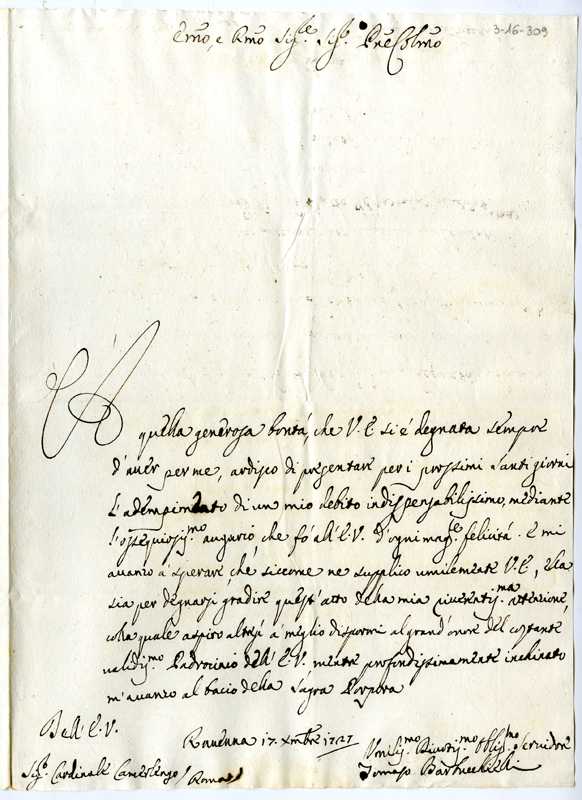 3-16-309
Emo, e Rmo Sig.re Sig.r Prōe Colmo
A quella generosa bontà, che V. E. si è degnata sempre
d'aver per me, ardisco di presentare per i prossimi Santi giorni
l'adempimento di un mio debito indispensabilissimo, mediante
l'ossequiosiss.mo augurio, che fò all'E. V. d'ogni mag.re felicità. E mi
avanzo à sperare, che, siccome ne supplico umilmente V. E., ella
sia per degnarsi gradire quest'atto della mia riverentiss.ma attenzione,
colla quale aspiro altresì à meglio dispormi al grand'onore del costante
validiss.mo Padrocinio dell'E. V. mentre profondissimamente inchinato
m'avanzo al bacio della Sagra Porpora
Dell'E. V.
Ravenna 17. Xmbre 1727
Umiliss.mo Divotiss.mo Obblig.mo Servidore
Sig.r Cardinale Camerlengo / Roma
Tomaso